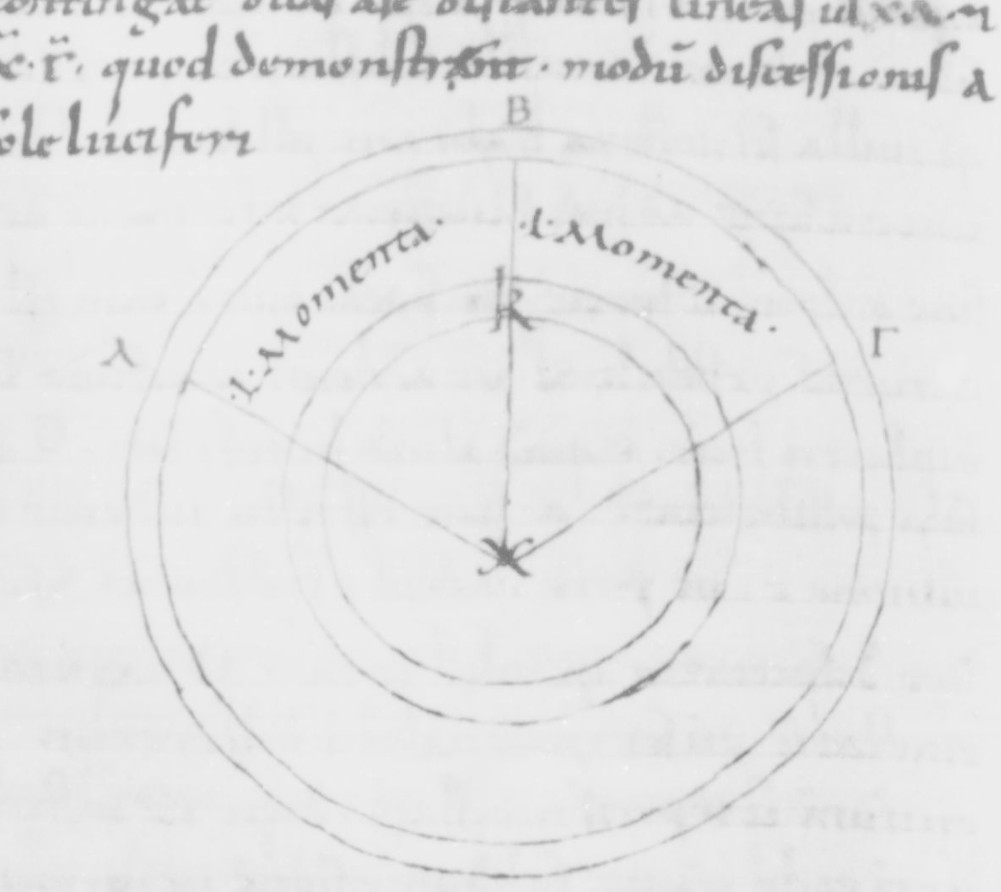 contingat duas a se distantes lineas ul x.a.
x̄.r̄. quod demonstrabit. modū discessionis a
sole luciferi
B
.L. Momenta. .L. Momenta.
λ Γ
K
X